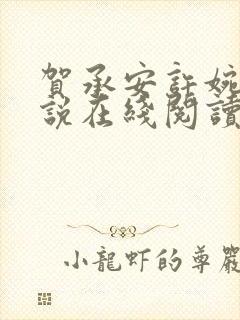 賀承安許婉
說在綫閱讀
小龍虾的尊嚴